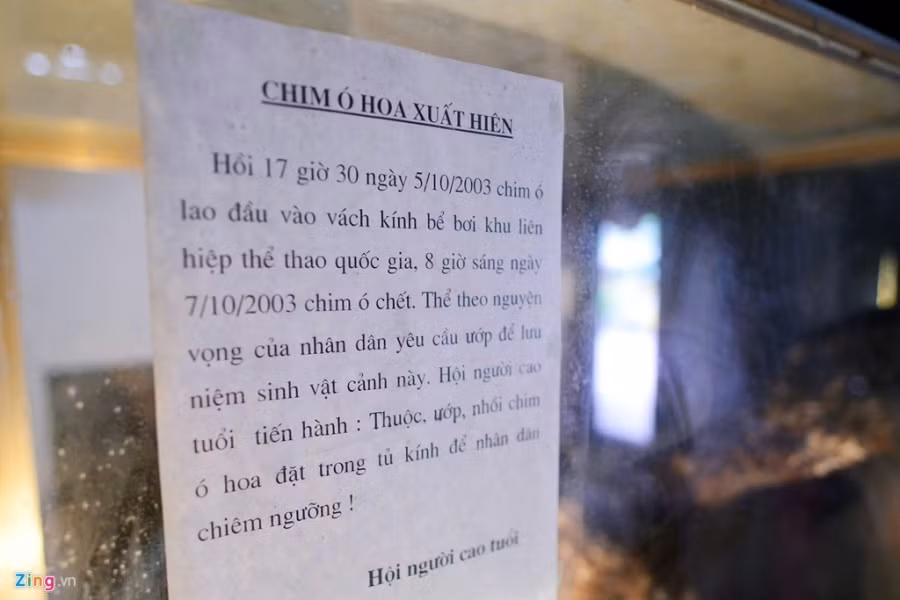 CHIM Ó HOA XUẤT HIÊN
Hồi 17 giờ 30 ngày 5/10/2003 chim ó
lao đầu vào vách kính bể bơi khu liên
hiệp thể thao quốc gia, 8 giờ sáng ngày
7/10/2003 chim ó chết. Thể theo nguyện
vọng của nhân dân yêu cầu ướp để lưu
niệm sinh vật cảnh này. Hội người cao
tuổi tiến hành : Thuộc, ướp, nhồi chim
ó hoa đặt trong tủ kính để nhân dân
chiêm ngưỡng !
Hội người cao tuổi
Zing.vn